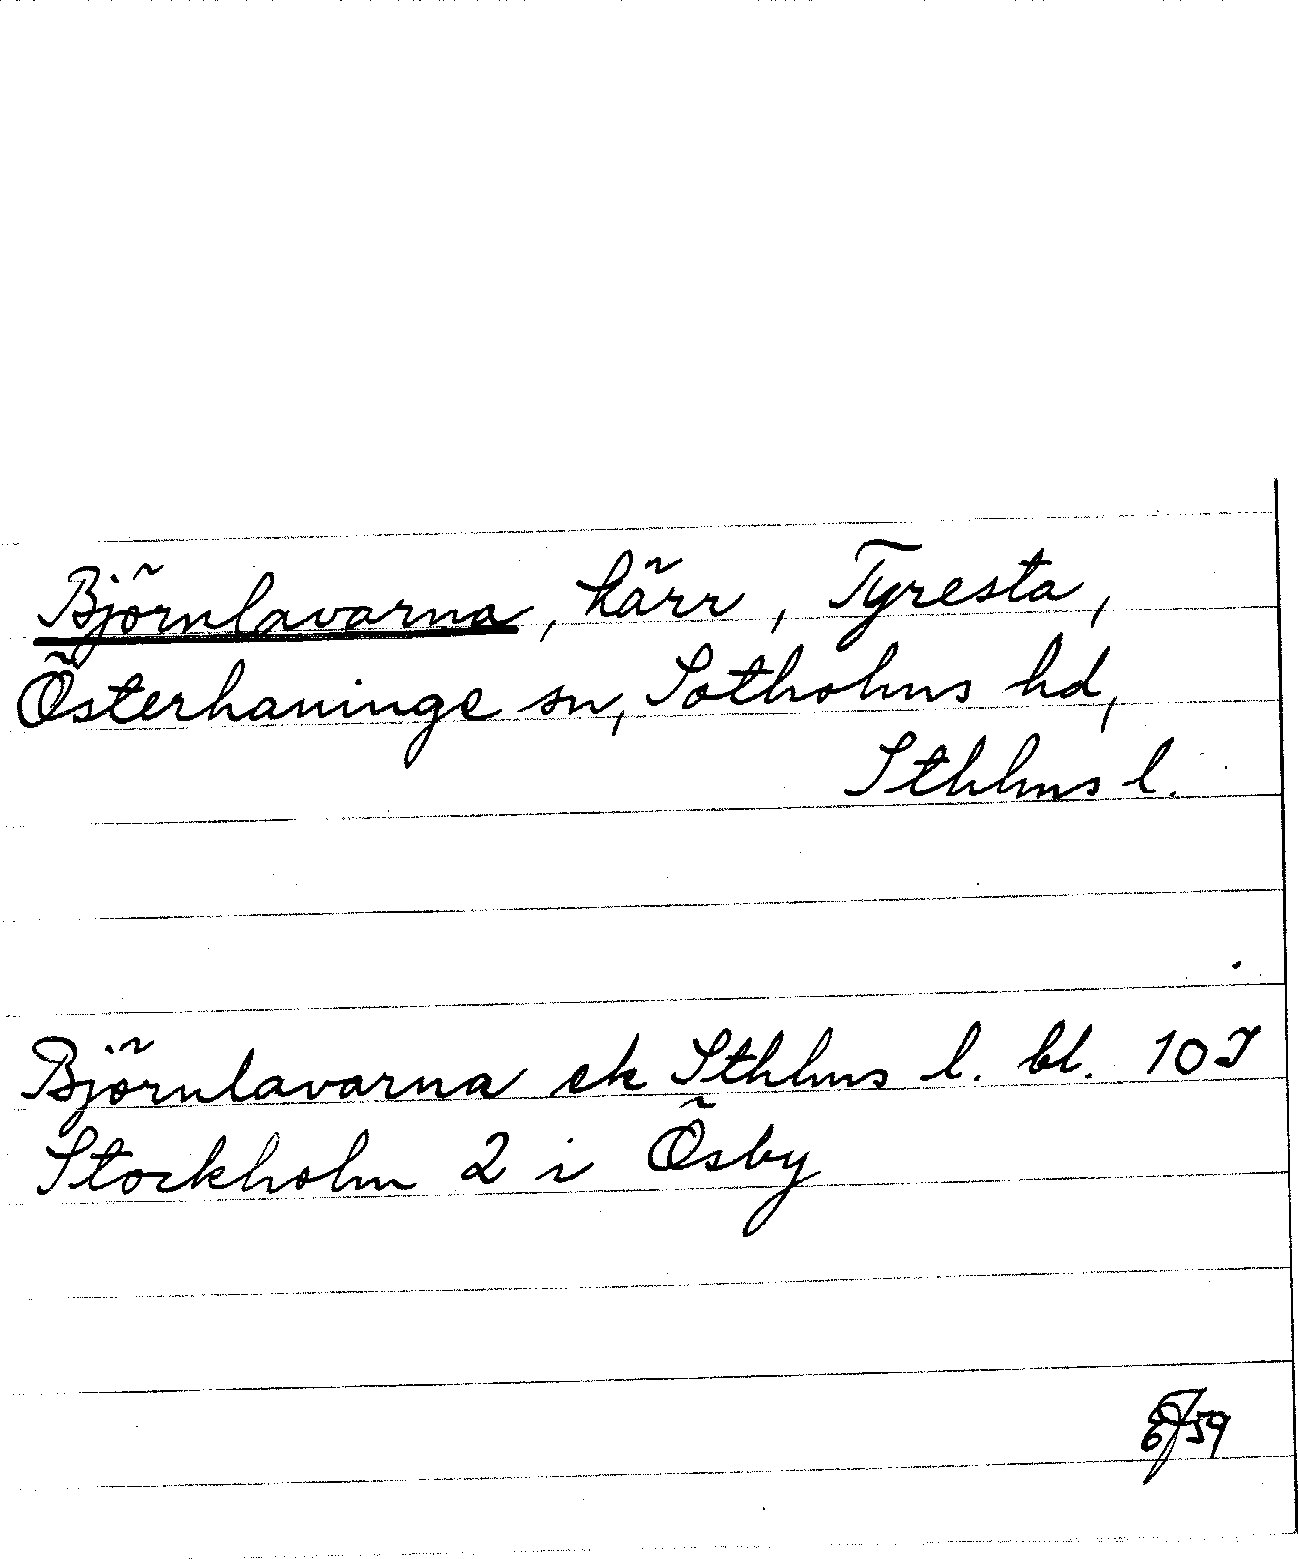 Björnlavarna, kärr, Tyresta,
Österhaninge sn, Sotholms hd,
Sthlms l.
Björnlavarna ek Sthlms l. bl. 10 J
Stockholm 2 i Ösby
59